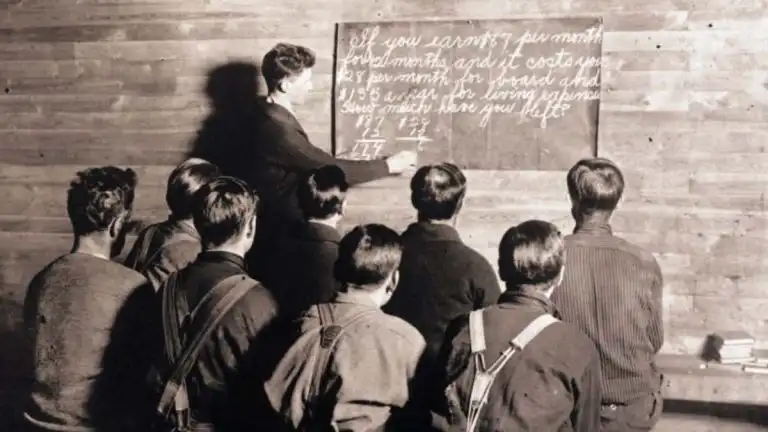 If you earn $87 per month
for 12 months and it costs you
$28 per month for board and
$135 a year for living expense
How much have you left?
$87 $28
12 12
174